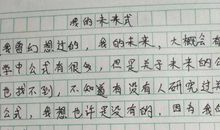 我的未来式
我曾幻想过的,我的未来,大概会有
学中公式有很多,但是关于未来的公式
也找不到,不知道有没有人研究过
公式,我想也许是没有的,因为我